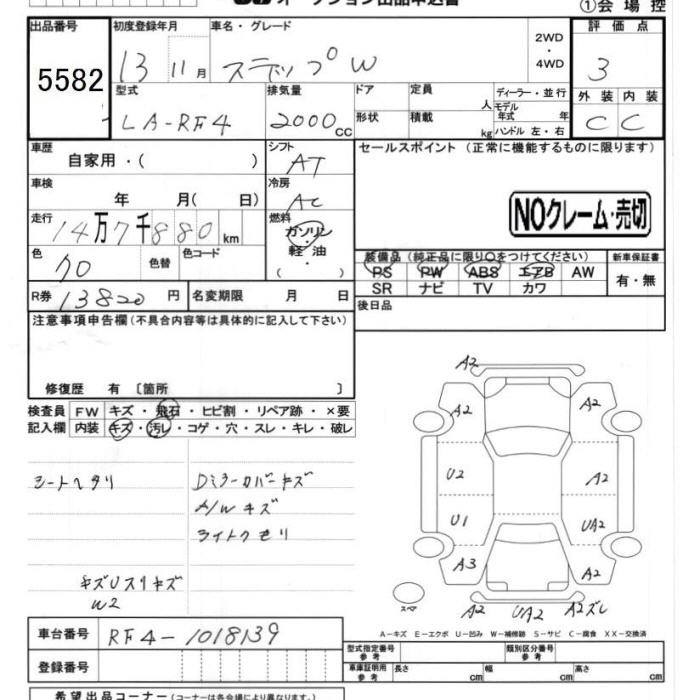 オークション出品申込書
①会場控
出品番号
5582
初度登録年月
13 11月
車名・グレード
ステップW
2WD
・
4WD
評価点
3
外装 内装
C C
型式
LA-RF4
排気量
2000cc
ドア
形状
定員
人
積載
kg
ディーラー・並行
モデル
年式 年
ハンドル 左・右
車歴
自家用・( )
シフト
AT
セールスポイント (正常に機能するものに限ります)
車検
年 月( 日)
冷房
AC
NOクレーム・売切
走行
14万7千880km
燃料
ガソリン
軽油
( )
色
クロ
色替
色コード
装備品(純正品に限り○をつけてください)
PS PW ABS エアB AW
SR ナビ TV カワ
新車保証書
有・無
R券
13820円
名変期限 月 日
後日品
注意事項申告欄(不具合内容等は具体的に記入して下さい)
修復歴 有 〔箇所 〕
検査員
記入欄
FW キズ・飛石・ヒビ割・リペア跡・×要
内装 キズ・汚レ・コゲ・穴・スレ・キレ・破レ
シートヘタリ
Dミラーカバーキズ
A/Wキズ
ライトクモリ
キズUスリキズ
W2
A2
A2
A2
U2
A2
U1
UA2
A3
A2
スペア
A2
UA2
A2ズレ
A-キズ E-エクボ U-凹み W-補修跡 S-サビ C-腐食 XX-交換済
車台番号
RF4-1018139
登録番号
型式指定番号
参考
類別区分番号
参考
車庫証明用
参考
長さ cm
幅 cm
高さ cm
希望出品コーナー(コーナーは各会場により異なります)